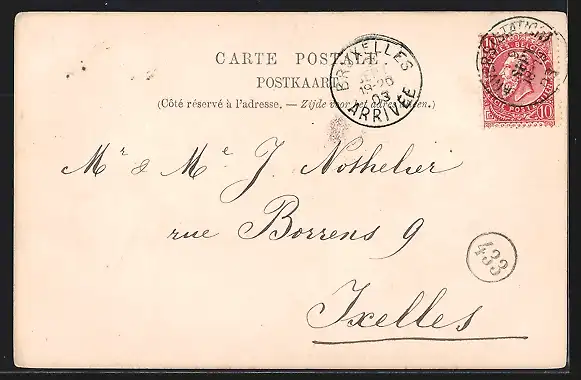 CARTE POSTALE
POSTKAART
(Côté réservé à l'adresse. — Zijde voor het adres
BRUXELLES
19-20
03
ARRIVÉE
10 10
Mr & Me J. Nothelier
rue Borrens 9
433
Ixelles